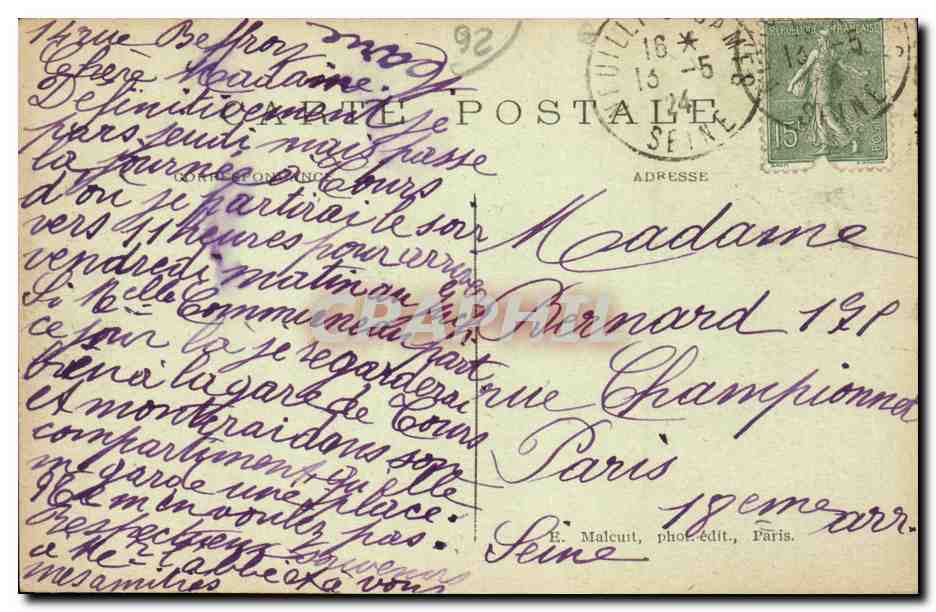 14 rue Beffroy
Chère Madame.
Definitivement je
pars jeudi mais passe
la journée a Tours
d'ou je partirai le soir
vers 11 heures pour arriver
vendredi matin au
Si Melle Communeau part
ce jour la je regarderai
bien à la gare de Tours
et montrai dans son
compartiment qu'elle
me garde une place.
Ne m'en voulez pas.
Respectueux souvenirs
a Mr l'abbé et a vous
mes amitiés
92
CARTE POSTALE
CORRESPONDANCE
ADRESSE
NEUILLY
16 *
13 -5
24
SEINE
13 -5
SEINE
REPUBLIQUE FRANÇAISE
15c
POSTES
Madame
Bernard 191
rue Championnet
Paris
18eme arr.
Seine
E. Malcuit, phot.-édit., Paris.
CRAPHIL